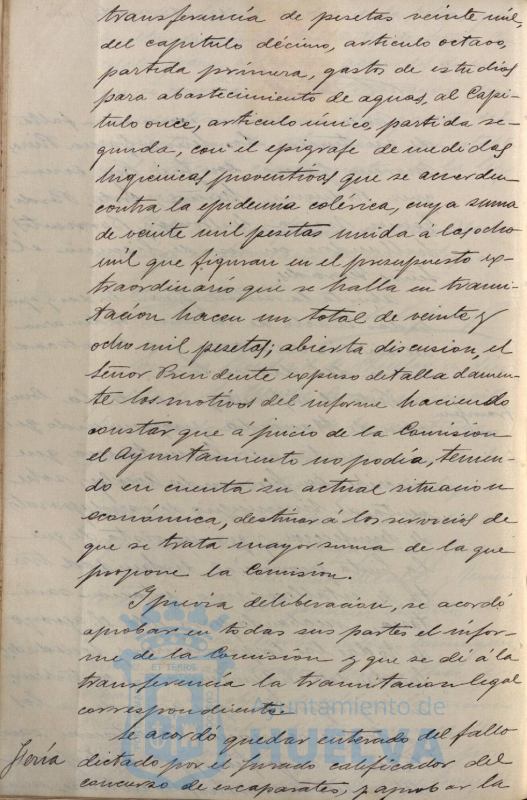 transferencia de pesetas veinte mil,
del capítulo décimo, artículo octavo,
partida primera, gastos de estudios
para abastecimiento de aguas, al Capí-
tulo once, artículo único, partida se-
gunda, con el epígrafe de medidas
higiénicas preventivas que se acuerden
contra la epidemia colérica, cuya suma
de veinte mil pesetas unida á las ocho
mil que figuran en el presupuesto ex-
traordinario que se halla en trami-
tación hacen un total de veinte y
ocho mil pesetas; abierta discusion, el
Señor Presidente expuso detalladamen-
te los motivos del informe haciendo
constar que á juicio de la Comision
el Ayuntamiento no podía, tenien-
do en cuenta su actual situacion
económica, destinar á los servicios de
que se trata mayor suma de la que
propone la Comisión.
Y previa deliberacion, se acordó
aprobar en todas sus partes el infor-
me de la Comisión y que se dé á la
transferencia la tramitacion legal
correspondiente.
Se acordó quedar enterado del fallo
Feria
dictado por el jurado calificador del
concurso de escaparates, y aprobar la
ET TERRIS
Ayuntamiento de
HUELVA